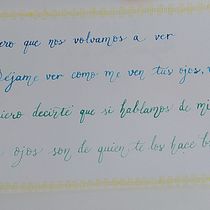 ero que nos volvamos a ver
Déjame ver como me ven tus ojos,
iero decirte que si hablamos de mi
ojos son de quien te los hace b